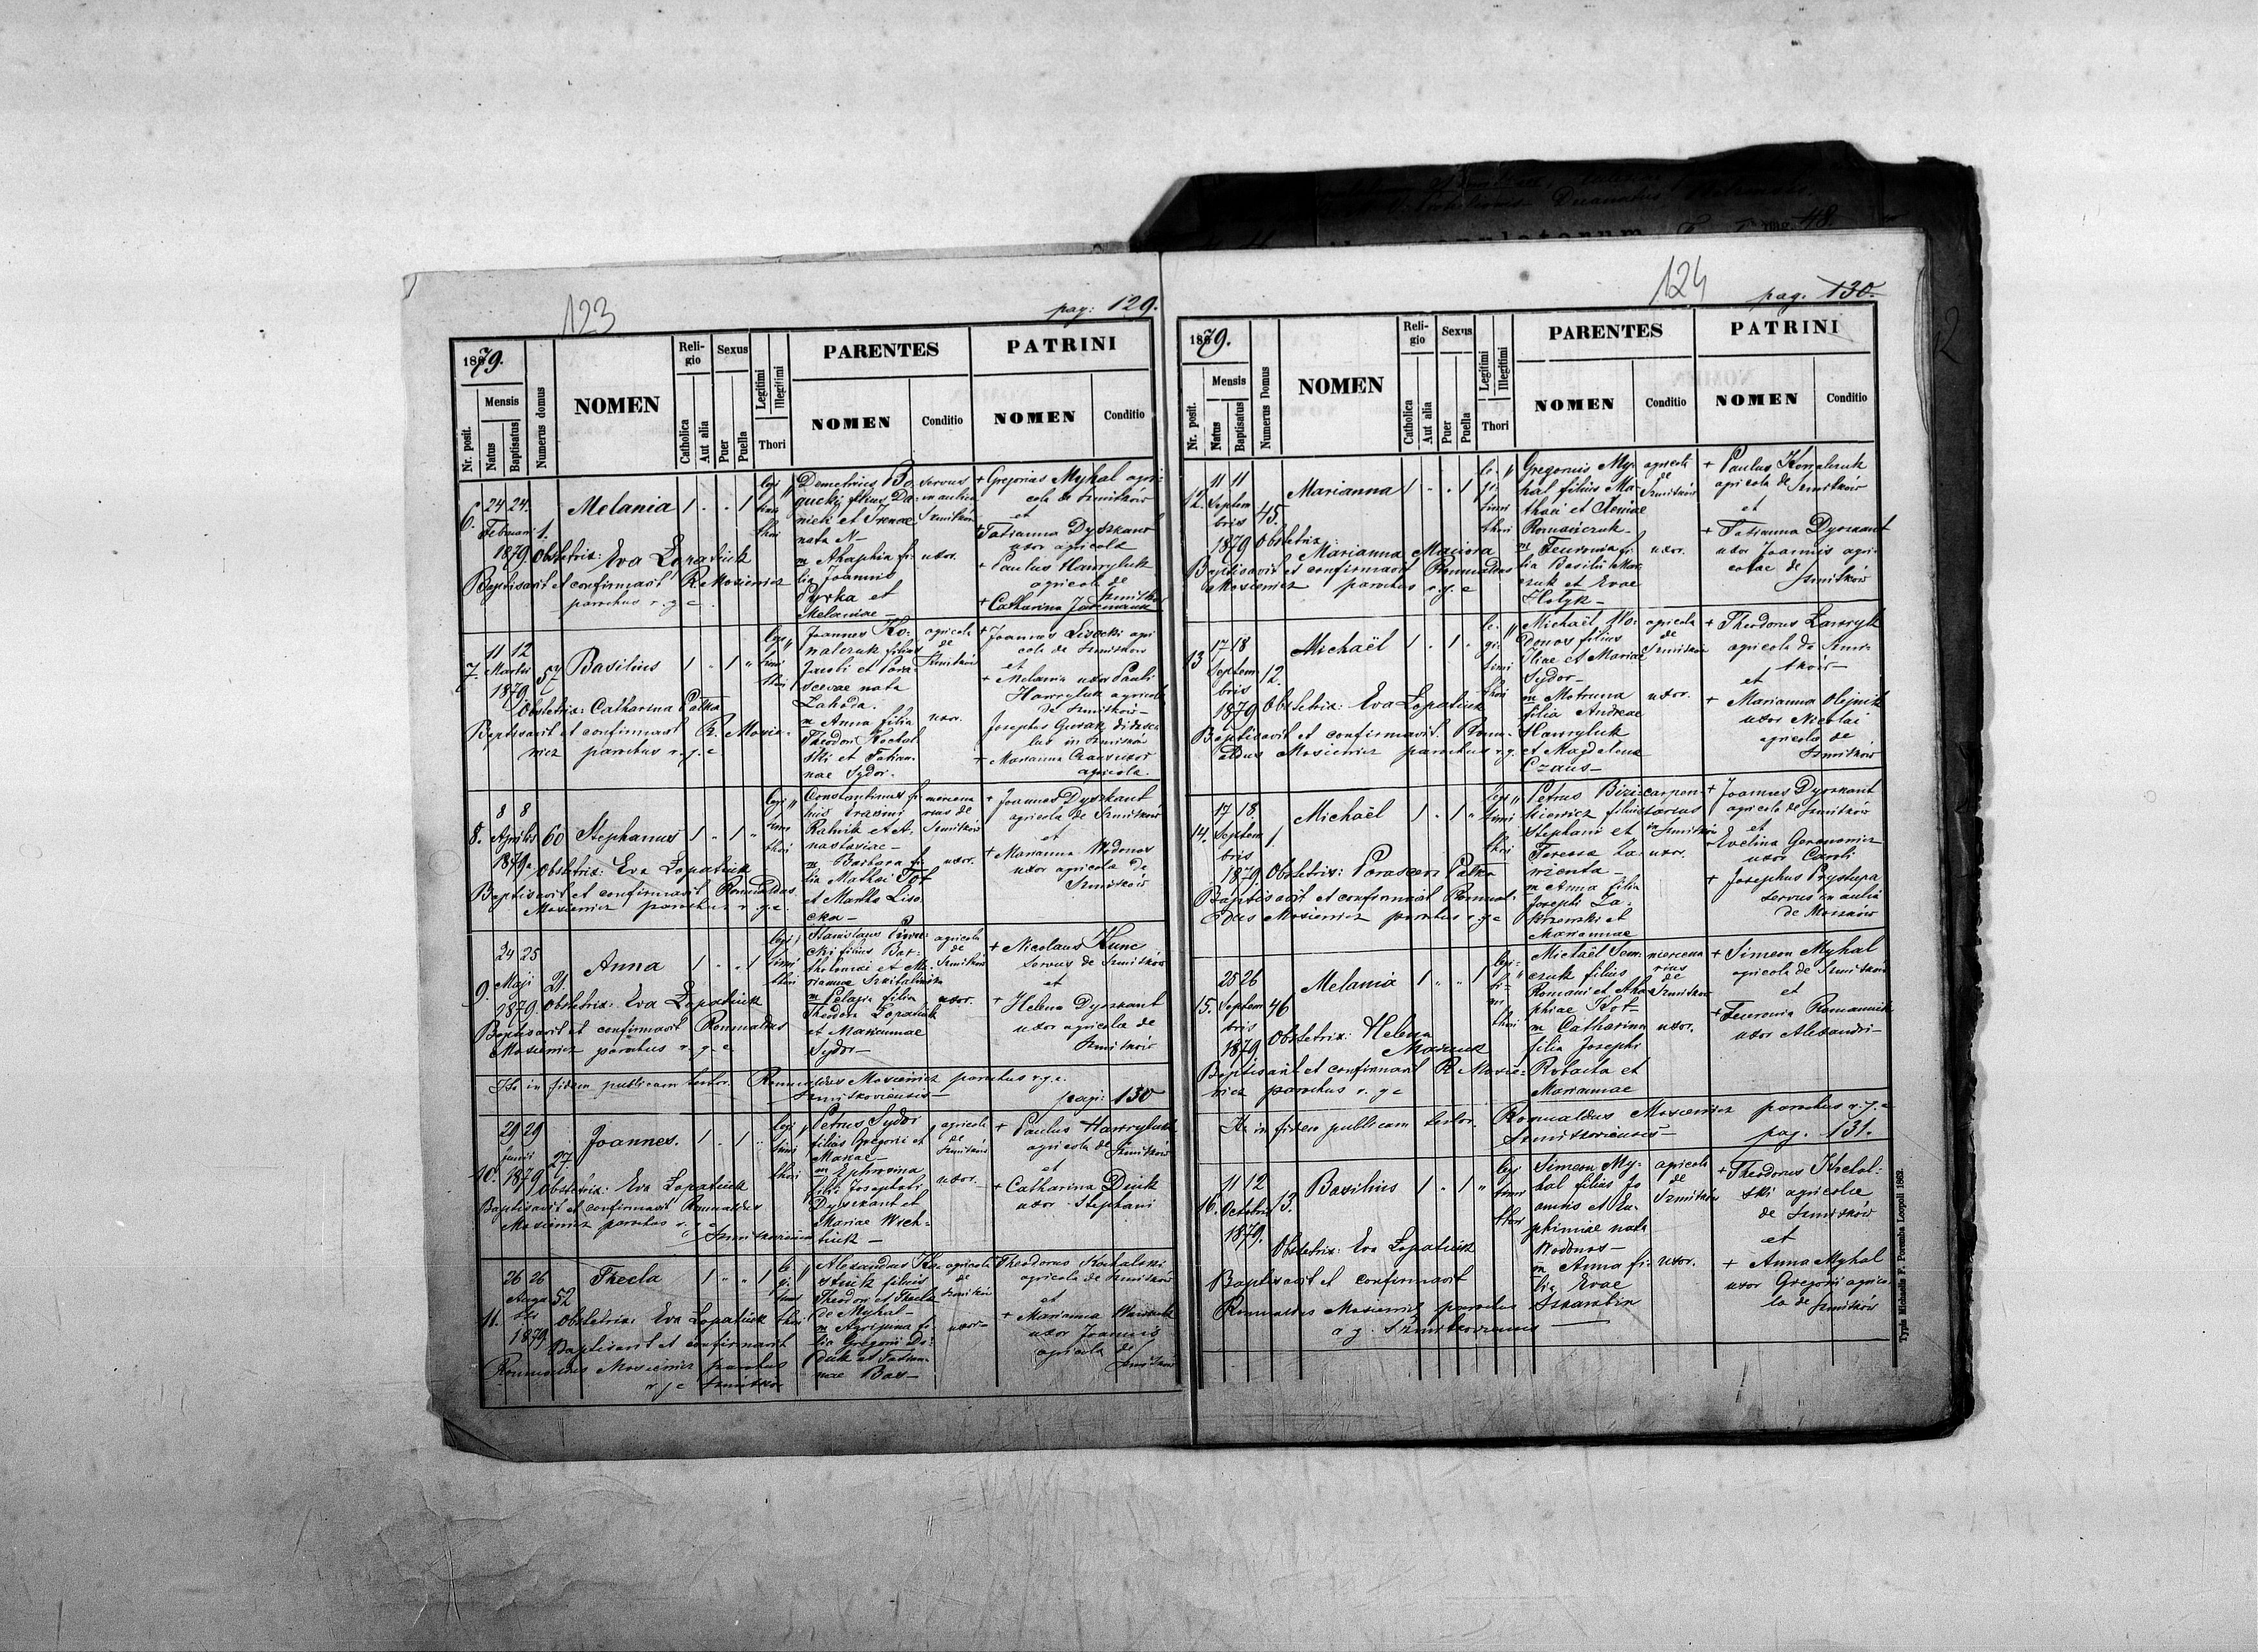 123
pag: 129.
1879.
Nr. posit.
Mensis
Natus
Baptisatus
Numerus domus
NOMEN
Religio
Catholica
Aut alia
Sexus
Puer
Puella
Legitimi
Illegitimi
Thori
PARENTES
NOMEN
Conditio
PATRINI
NOMEN
Conditio
6.
24 24.
Februar
1879
1.
Melania
1 . . 1
legi
timi
thori
Obstetrix: Eva Lopatiuk
Baptisavit et confirmavit R Mosiewicz
parochus r. g. c.
Demetrius Bo-
gucki filius Da-
nieli et Irenae
nata N-
m Ahaphia fi-
lia Joannis
Pyrka et
Melaniae-
servus
in aulica
Szmitków
uxor.
+ Gregorius Myhal agri
cola de Szmitków
et
+ Tatianna Dyszkant
uxor agricola
+ Paulus Hawryluk
agricola de
Szmitków
+ Catharina
7.
11 12
Martii
1879
57
Basilius
1 . 1 "
legi
timi
thori
Obstetrix: Catharina Patka
Baptisavit et confirmavit R. Mosie-
wicz parochus r. g. c
Joannes Ko-
walczuk filius
Jacobi et Para-
scevae nata
Zahoda.
m Anna filia
Theodori Kochal-
ski et Tatian-
nae Sydor.
agricola
de
Szmitków
uxor.
+ Joannes Lisocki agri
cola de Szmitków
et
+ Melania uxor Pauli
Hawryluk agricola
de Szmitków-
Josephus Gurak didasca
lus in Szmitków
+ Marianna Czaus uxor
agricola.
8.
8 8
Aprilis
1879.
60
Stephanus
1 . 1 "
legi
timi
thori
Obstetrix: Eva Lopatiuk
Baptisavit et confirmavit Romualdus
Mosiewicz parochus r. g. c.
Constantinus fi-
lius Erasmi
Ratnik et A-
nastasiae-
m Barbara fi-
lia Mathei Tot
et Martha Liso
cka-
mercena
rius de
Szmitków
uxor.
+ Joannes Dyszkant
agricola de Szmitków
et
+ Marianna Wodonos
uxor agricola de
Szmitków
9.
24 25
Maji
1879.
21.
Anna
1 . . 1
legi
timi
thori
Obstetrix: Eva Lopatiuk
Baptisavit et confirmavit Romualdus
Mosiewicz parochus r. g. c.
Stanislaus
cki filius Bar-
tholomiei et Ma-
rianna
m Pelagia filia
Theodori Lopatiuk
et Mariannae
Sydor-
agricola
de
Szmitków
uxor.
+ Nicolaus Kunc
servus de Szmitków
et
+ Helena Dyszkant
uxor agricola de
Szmitków
Ita in fidem publicam testor. Romualdus Mosiewicz parochus r.g.c.
Szmitkoviensis-
pagi: 130
10.
29 29
Junii
1879
27.
Joannes.
1 . 1 "
legi
timi
thori
Obstetrix: Eva Lopatiuk
Baptisavit et confirmavit Romualdus
Mosiewicz parochus r. g. c
Szmitkoviensis
Petrus Sydor
filius Gregorii et
Mariae-
m Ephrosina
filia Josaphati
Dyszkant et
Mariae
agricola
de
Szmitków
uxor.
+ Paulus Hawryluk
agricola de
Szmitków
et
+ Catharina Diuk
uxor Stephani
11.
26 26
Augu
sti
1879
52
Thecla
1 " " 1
le
gi
timi
thori
Obstetrix: Eva Lopatiuk
Baptisavit et confirmavit
Romualdus Mosiewicz parochus
r g c Szmitkov
Alexandrus
filius
Theodori et Thecla
de Myhal-
m Agripina fi-
lia Gregorii Di-
duk et Tatian-
nae Bas-
agricola
de
Szmitków
uxor-
Theodorus Kochalski
agricola de Szmitków
et
+ Marianna
uxor Joannis
agricola de
Szmitków
124
pag. 130.
1879.
Nr. posit.
Mensis
Natus
Baptisatus
Numerus Domus
NOMEN
Religio
Catholica
Aut alia
Sexus
Puer
Puella
Legitimi
Illegitimi
Thori
PARENTES
NOMEN
Conditio
PATRINI
NOMEN
Conditio
12.
11 11
Septem
bris
1879
45.
Marianna
1 . . 1
le-
gi-
timi
thori
Obstetrix:
Marianna
Baptisavit et confirmavit Romualdus
Mosiewicz parochus r. g. c
Gregorius My-
hal filius Ma-
thaei et Xeniae
Romańczuk-
m Feuronia fi-
lia Basilii
czuk et Evae
Hotyk-
agricola
de
Szmitków
uxor.
+ Paulus Kowalczuk
agricola de Szmitków
et
+ Tatianna Dyszkant
uxor Joannis agri-
colae de
Szmitków
13
17 18
Septem
bris
1879
12.
Michaël
1 . 1 .
le-
gi-
timi
thori
Obstetrix: Eva Lopatiuk
Baptisavit et confirmavit. Romu-
aldus Mosiewicz parochus r. g.
Michaël Wo-
donos filius
Iliae et Mariae
Sydor-
m Motruna
filia Andreae
Hawryluk
et Magdalena
Czaus-
agricola
de
Szmitków
uxor.
+ Theodorus Hawryluk
agricola de Szmi-
tków-
et
+ Marianna Olejnik
uxor Nicolai
agricola de
Szmitków
14.
17 18.
Septem
bris
1879
1.
Michaël
1 . 1 "
legi
timi
thori
Obstetrix: Parascevi Patka
Baptisavit et confirmavit Romual-
dus Mosiewicz parochus r. g. c
Petrus Bizi-
kiewicz filius
Stephani et
Teressa
m Anna filia
Josephi Za-
krzewski et
Mariannae
carpen-
tarius
in Szmitków
uxor.
+ Joannes Dyszkant
agricola de Szmitków
et
Evelina
uxor Caroli
+ Josephus Prystupa
servus in aulia
de Moszków
15.
25 26
Septem
bris
1879
46
Melania
1 " " 1
legi-
ti-
mi
thori
Obstetrix: Helena
Baptisavit et confirmavit R Mosie-
wicz parochus r. g. c
Michaël Sem-
czuk filius
Romani et Aha-
phiae Kot-
m Catharina
filia Josephi
Robacta et
Mariannae
mercena
rius
de
Szmitków
uxor.
+ Simeon Myhal
agricola de Szmitków
et
+ Feuronia Romaniuk
uxor Alexandri-
Ita in fidem publicam testor. Romualdus Mosiewicz parochus r. g. c
Szmitkoviensis-
pag. 131.
16.
11 12.
Octobris
1879.
13.
Basilius
1 . 1 "
legi
timi
thori
Obstetrix: Eva Lopatiuk
Baptisavit et confirmavit
Romualdus Mosiewicz parochus
r g. Szmitkoviensis
Simeon My-
hal filius Jo
annis et Eu-
phimiae nata
Wodonos-
m Anna fi-
lia Evae
Skarabin
agricola
de
Szmitków
uxor.
+ Theodorus Kochal-
ski agricola
de Szmitków
et
+ Anna Myhal
uxor Gregorii agrico
la de Szmitków
Typis Michaelis F. Poremba Leopoli 1862.